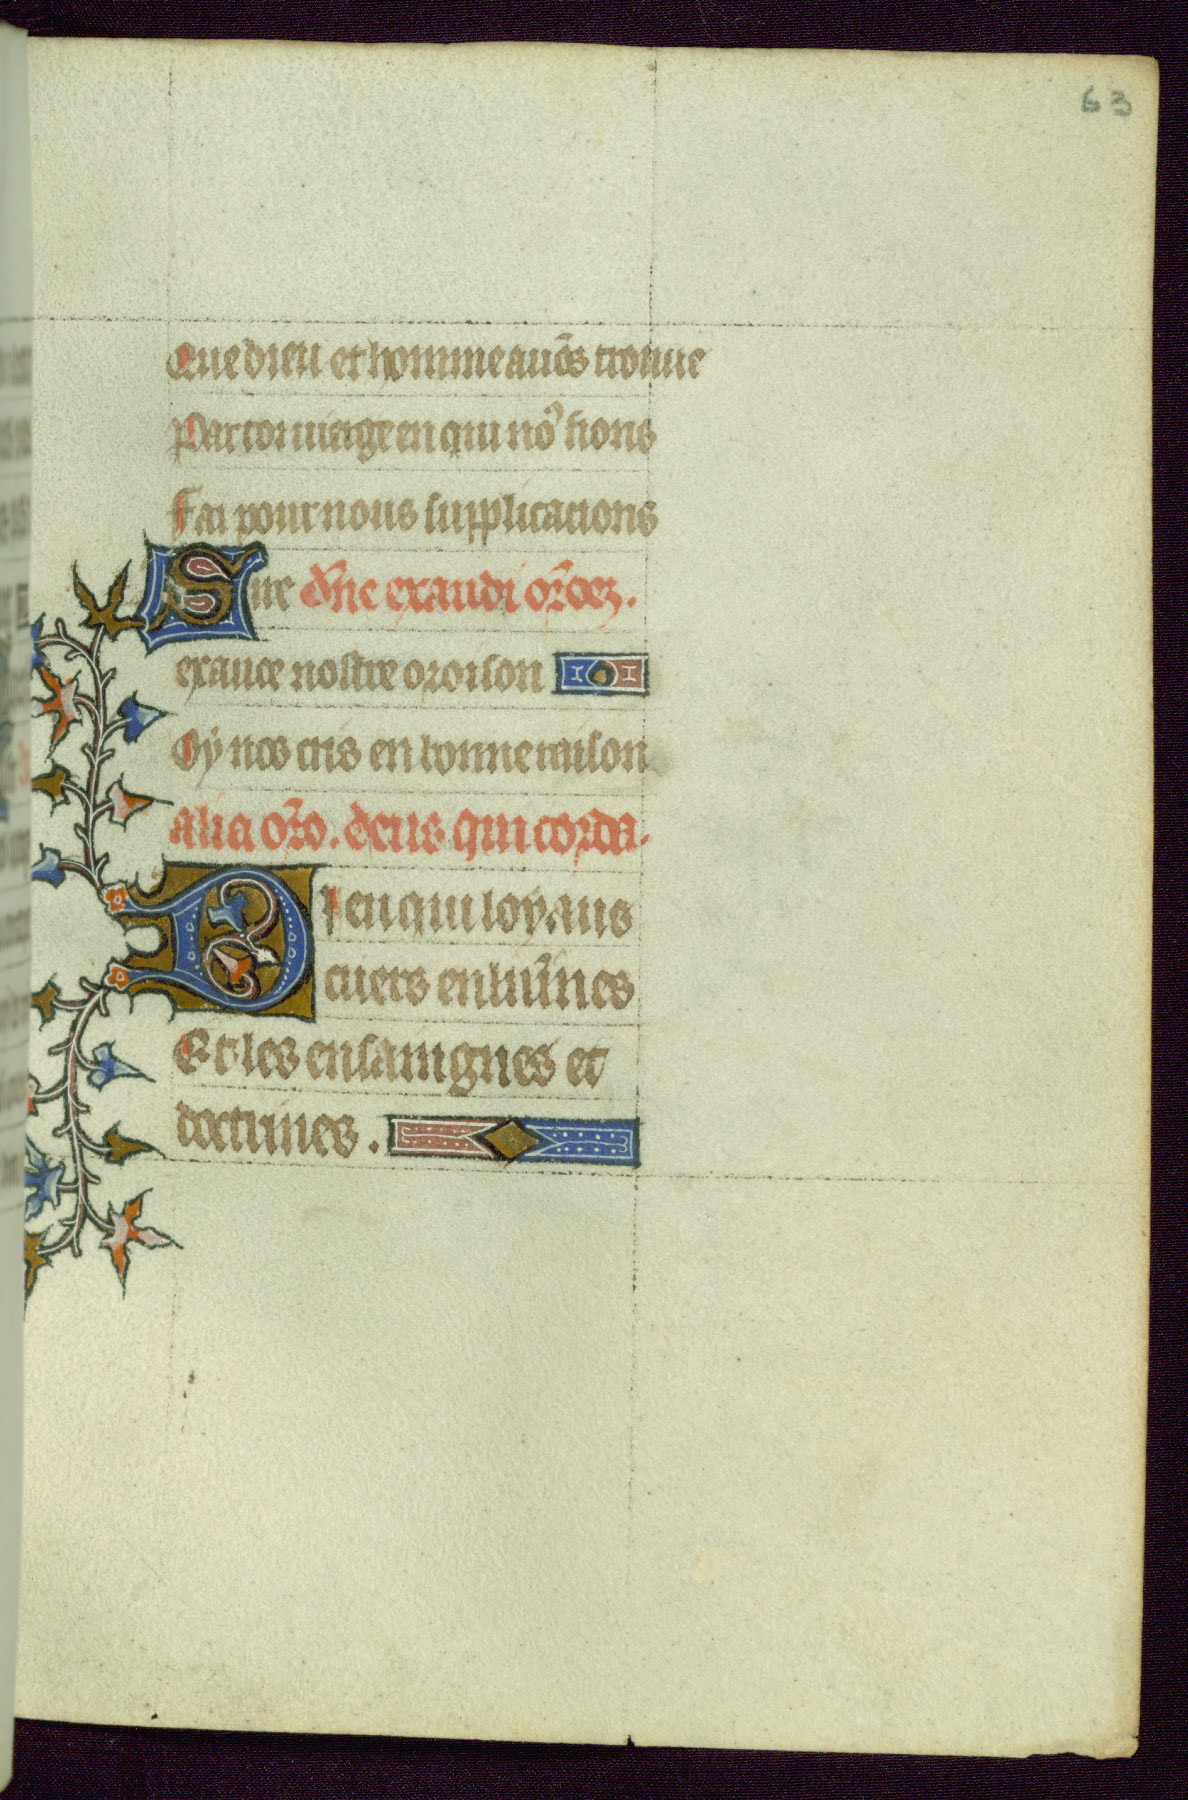 63
Que dieu et homme auõs trouue
Par ton uiage en qui no9 fions
Fai pour nous supplicacions
Sire dñe exaudi orõez.
exauce nostre oroison
Oÿ nos cris en bonne raison
Alia orõ. deus qui corda.
Dieu qui loyaus
cuers enlumĩnes
Et les ensaingnes et
doctrines.